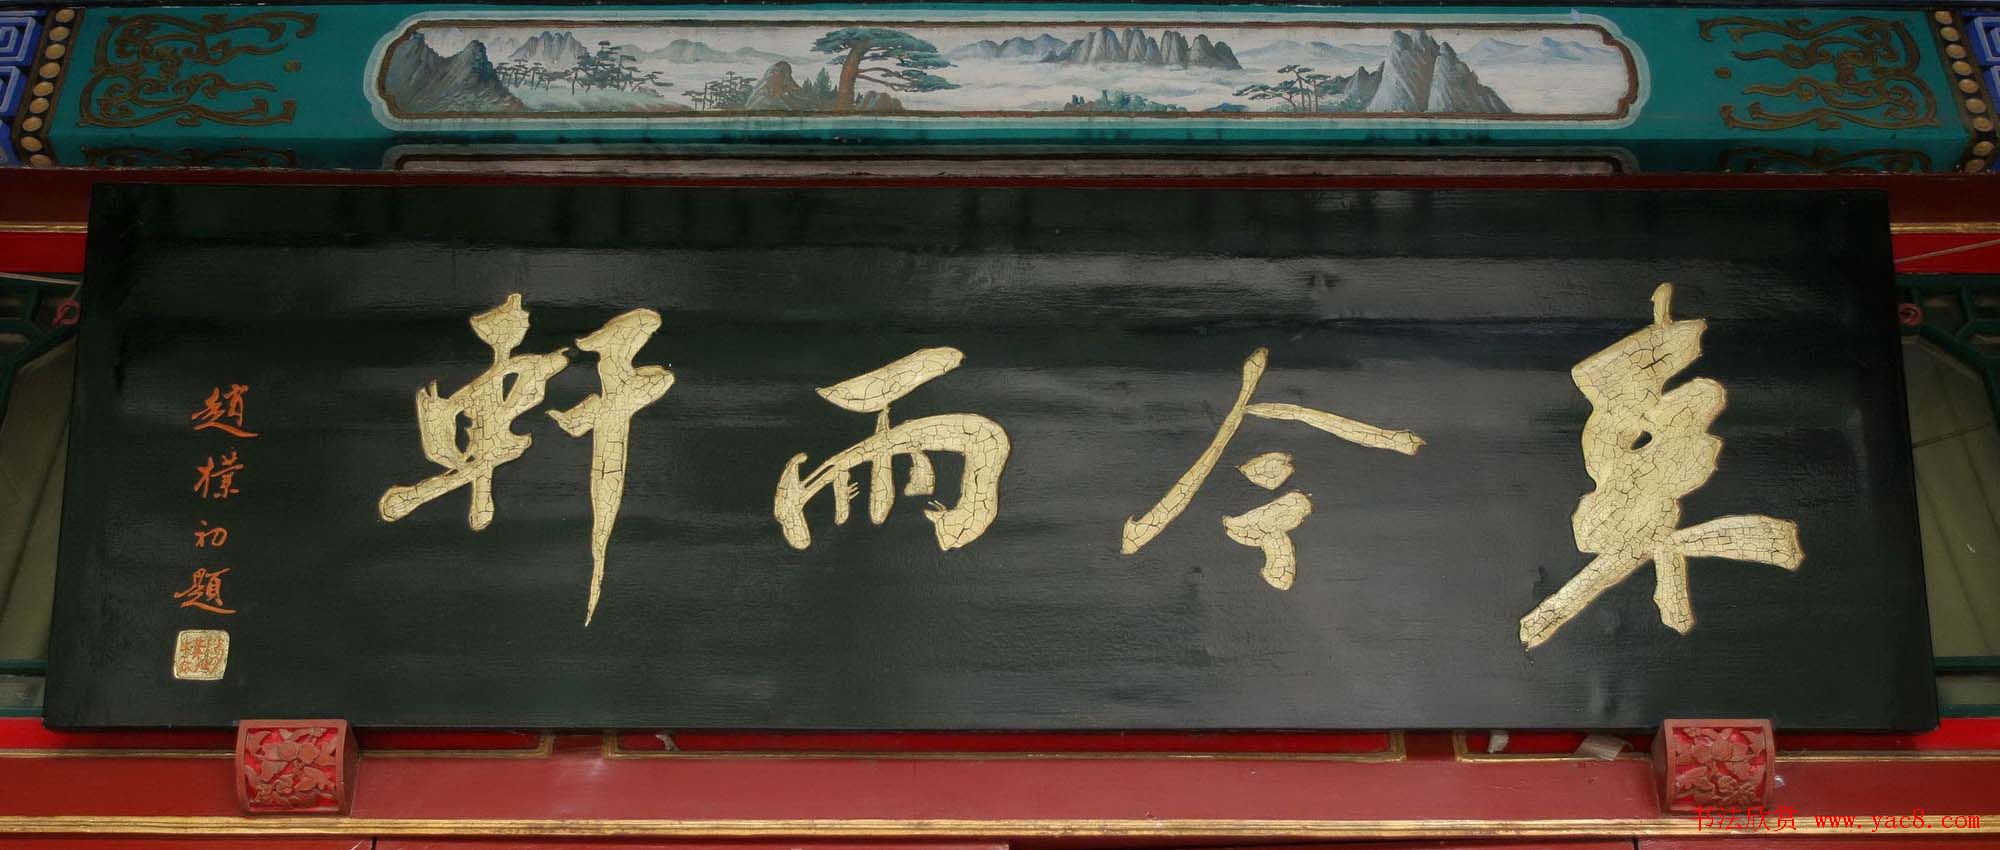 來今雨軒
趙樸初題
书法欣赏 www.yac8.com